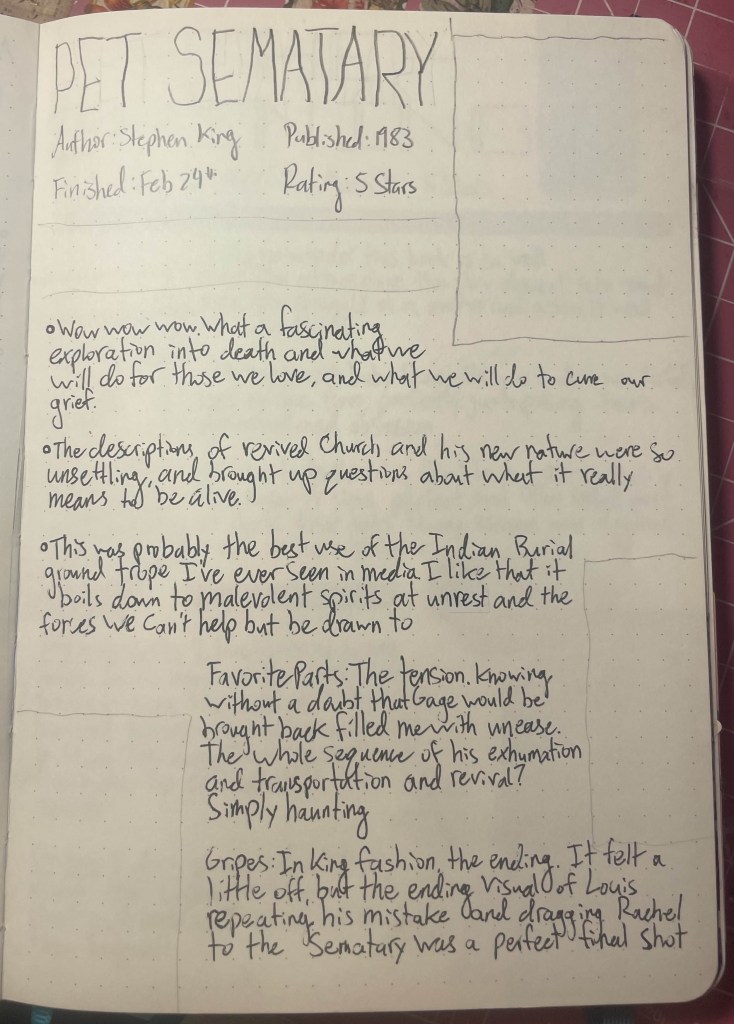 PET SEMATARY
Author: Stephen King Published: 1983
Finished: Feb 24th Rating: 5 Stars
• Wow wow wow. What a fascinating
exploration into death and what we
will do for those we love, and what we will do to cure our
grief.
• The descriptions of revived Church and his new nature were so
unsettling, and brought up questions about what it really
means to be alive.
• This was probably the best use of the Indian Burial
ground trope I've ever seen in media. I like that it
boils down to malevolent spirits at unrest and the
forces we can't help but be drawn to
Favorite Parts: The tension. Knowing
without a doubt that Gage would be
brought back filled me with unease.
The whole sequence of his exhumation
and transportation and revival?
Simply haunting
Gripes: In King fashion, the ending. It felt a
little off, but the ending visual of Louis
repeating his mistake and dragging Rachel
to the Sematary was a perfect final shot